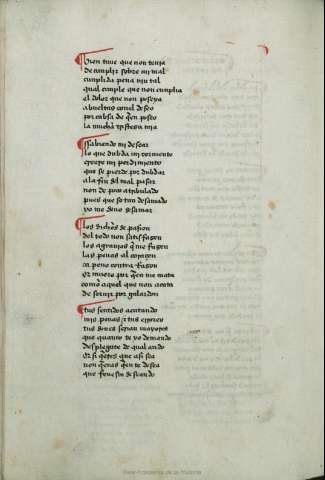 Bien tuve que non tenia
de cunplir sobre mi mal
cunplida pena mortal
qual cunple que non cunplia
el dolor que non poseya
abueltas con el deseo
por cabsa de quien poseo
la mucha tristesa mia
Sabiendo mi desear
lo que dubda mi tormento
creçe mi perdimiento
que se pierde por dubdar
a la fin del mal pasar
non de poco atribulado
pues que so tan desamado
yo me devo desamar
Los dichos de pasion
del todo non satisfazen
los agravios que me fazen
las penas al coraçon
ca peno contra razon
& muero por quien me mata
como aquel que non acata
de servir por galardon
tus sentidos acatando
mis penas & tus
tus dones sepan mayores
que quanto te yo demando
desplegote de qual ando
& si quieres que asi sea
non quieras quien te desea
que fenesca deseando